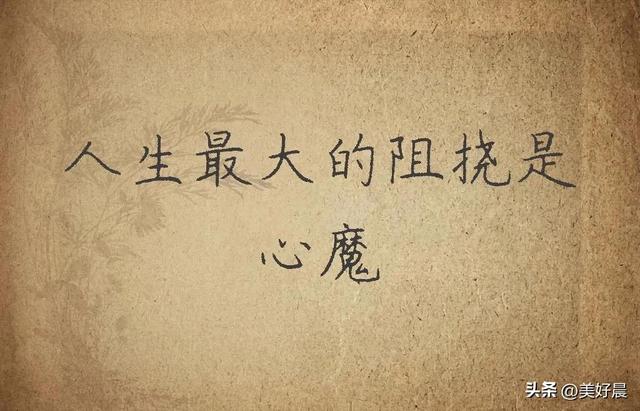 人生最大的阻挠是
心魔
头条 @美好晨